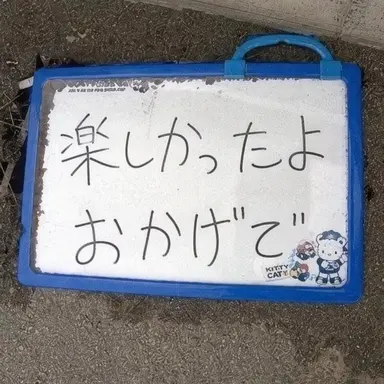 楽しかったよ
おかげで
KITTY
CAT